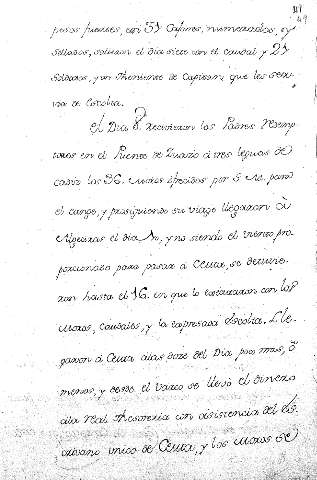 49
pesos fuertes, con 51 Cajones, numerados, y
sellados, salieron el dia siete con el caudal y 21
Soldados, y un Theniente de Capitan, que les servia
na de Escolta.
El Dia 8. recivieron los Padres Redemp
tores en el Puente de Zuazo à tres leguas de
Cadiz los 36. Moros ofrecidos por S. M. para
el cange, y prosiguiendo su viage llegaron à
Algeciras el dia 10, y no siendo el viento pro
porcionado para pasar à Ceuta, se detuvie
ron hasta el 16. en que lo executaron con los
Moros, caudales, y la expresada Escolta. Lle
garon à Ceuta alas doze del Dia poco mas, ò
menos, y desde el Barco se llevó el dinero
ala real Thesoreria con asistencia del Es
crivano unico de Ceuta, y los Moros se